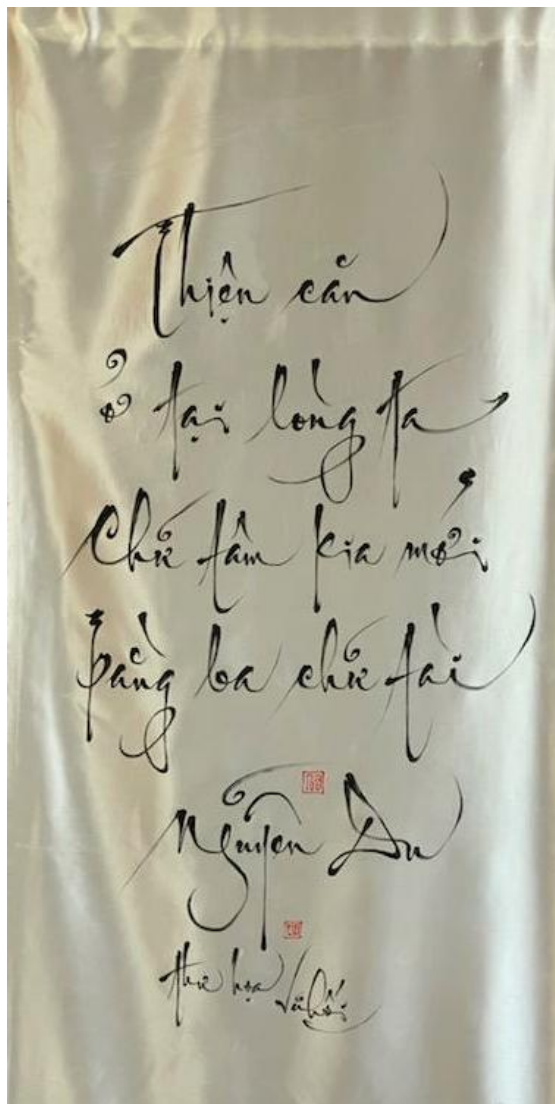 Thiện căn
ở tại lòng ta
Chữ tâm kia mới
bằng ba chữ tài
Nguyễn Du
thư họa